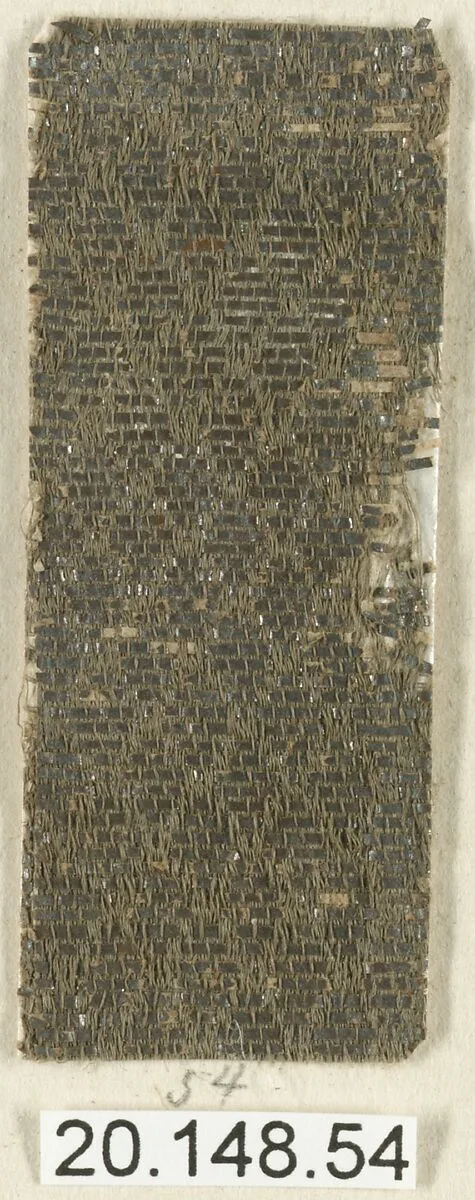 54
20.148.54